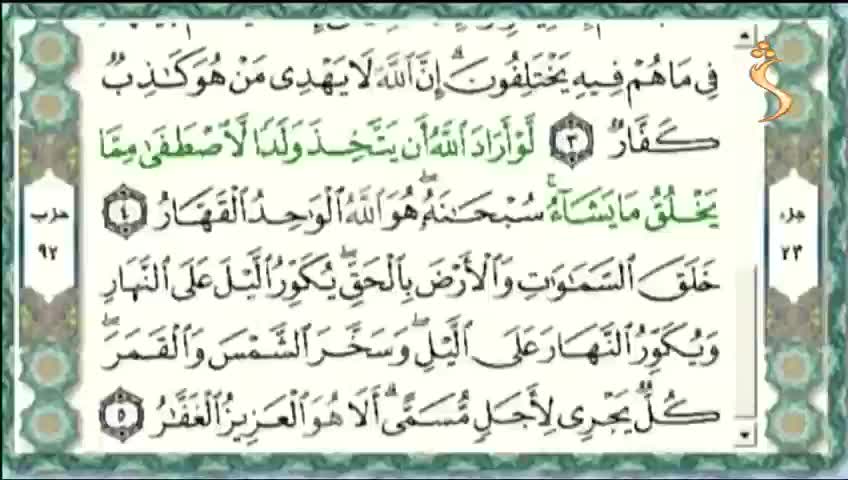 فِى مَا هُمْ فِيهِ يَخْتَلِفُونَ ۗ إِنَّ ٱللَّهَ لَا يَهْدِى مَنْ هُوَ كَـٰذِبٌ
كَفَّارٌ ٣ لَّوْ أَرَادَ ٱللَّهُ أَن يَتَّخِذَ وَلَدًا لَّٱصْطَفَىٰ مِمَّا
يَخْلُقُ مَا يَشَآءُ ۚ سُبْحَـٰنَهُۥ ۖ هُوَ ٱللَّهُ ٱلْوَٰحِدُ ٱلْقَهَّارُ ٤
خَلَقَ ٱلسَّمَـٰوَٰتِ وَٱلْأَرْضَ بِٱلْحَقِّ ۖ يُكَوِّرُ ٱلَّيْلَ عَلَى ٱلنَّهَارِ
وَيُكَوِّرُ ٱلنَّهَارَ عَلَى ٱلَّيْلِ ۖ وَسَخَّرَ ٱلشَّمْسَ وَٱلْقَمَرَ ۖ
كُلٌّ يَجْرِى لِأَجَلٍ مُّسَمًّى ۗ أَلَا هُوَ ٱلْعَزِيزُ ٱلْغَفَّـٰرُ ٥
جزء
٢٣
حزب
٩٢